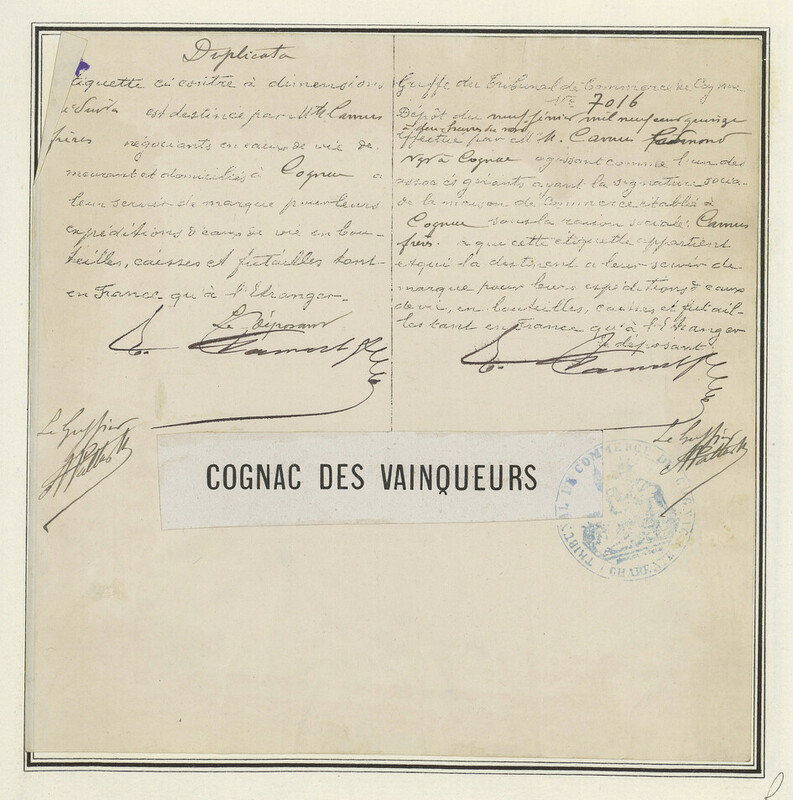 Duplicata
étiquette ci contre à dimensions
est destinée par MM. Camus
frères négociants en eaux de vie de-
meurant et domiciliés à Cognac a
leur servir de marque pour leurs
expéditions d'eaux de vie en bou-
teilles, caisses et futailles tant
en France qu'à l'Etranger.
Le Déposant
Le Greffier
Greffe du Tribunal de Commerce de Cognac
N° 7016
Dépôt du neuf février mil neuf cent quinze
effectué par M. Camus Edmond
Ngt à Cognac agissant comme l'un des
associés gérants ayant la signature socia-
de la maison de commerce établie à
Cognac sous la raison sociale: Camus
frères. a qui cette étiquette appartient
et qui la destinent a leur servir de
marque pour leurs expéditions d'eaux
de vie, en bouteilles, caisses et futail-
les tant en France qu'à l'Etranger
Le déposant
Le Greffier
COGNAC DES VAINQUEURS
TRIBUNAL DE COMMERCE DE COGNAC
CHARENTE